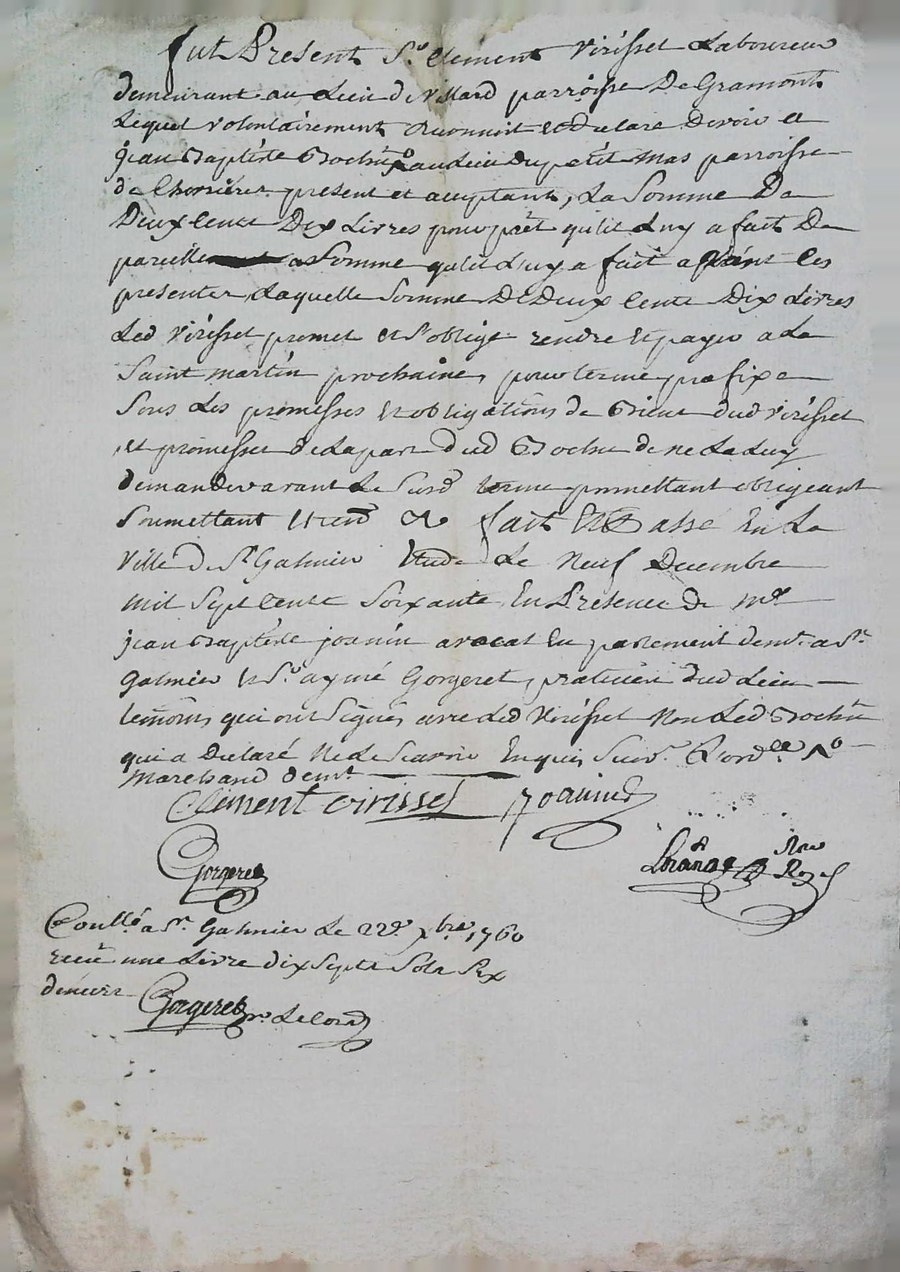 fut Present Sr Clement Virisset Laboureur
demeurant au Lieu de Villard parroisse De Gramont
Lequel volontairement reconnoit et Declare Devoir et
jean Baptiste Bochu au Lieu du petit Mas parroisse
de present et acceptant, La Somme De
Deux Cents Dix Livres pour prêt qu'il Luy a fait De
pareille Somme qu'il Luy a fait avant les
presentes, Laquelle Somme De Deux Cents Dix Livres
Led Virisset promet et s'oblige rendre et payer a La
Saint martin prochaine, pour terme prefixe
Sous Les promesses et obligations de Biens dud Virisset
et promesses de La part dud Bochu de ne La Luy
demander avant Le Susd terme promettant obligeant
Soumettant et fait et Passé En La
ville De St Galmier Etude Le Neuf Decembre
mil Sept Cents Soixante En Presence de Me
jean Baptiste joanin avocat En parlement demt a St
Galmier et Sr aymé Gorgeret, praticien dud Lieu
temoins, qui ont Signés avec Led Virisset Non Led Bochu
qui a Declaré Ne Le Scavoir Enquis Suivt L'ordce
Marchand demt
Clement virisset joanin
Gorgeret
Not Roy
Conllé a St Galmier Le 22e xbre 1760
receu une Livre dix Sept Sols Six
deniers Gorgeret